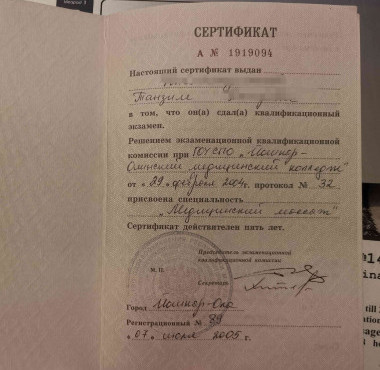 СЕРТИФИКАТ
А № 1919094
Настоящий сертификат выдан
Танзиле
в том, что он(а) сдал(а) квалификационный
экзамен.
Решением экзаменационной квалификационной
комиссии при ГОУ СПО „Йошкар-
Олинский медицинский колледж"
от « 29 » февраля 2004г. протокол № 32
присвоена специальность
„Медицинский массаж"
Сертификат действителен пять лет.
Председатель экзаменационной
квалификационной комиссии
М.П.
Секретарь
Город Йошкар-Ола
Регистрационный № 89
« 07 » июля 2005 г.